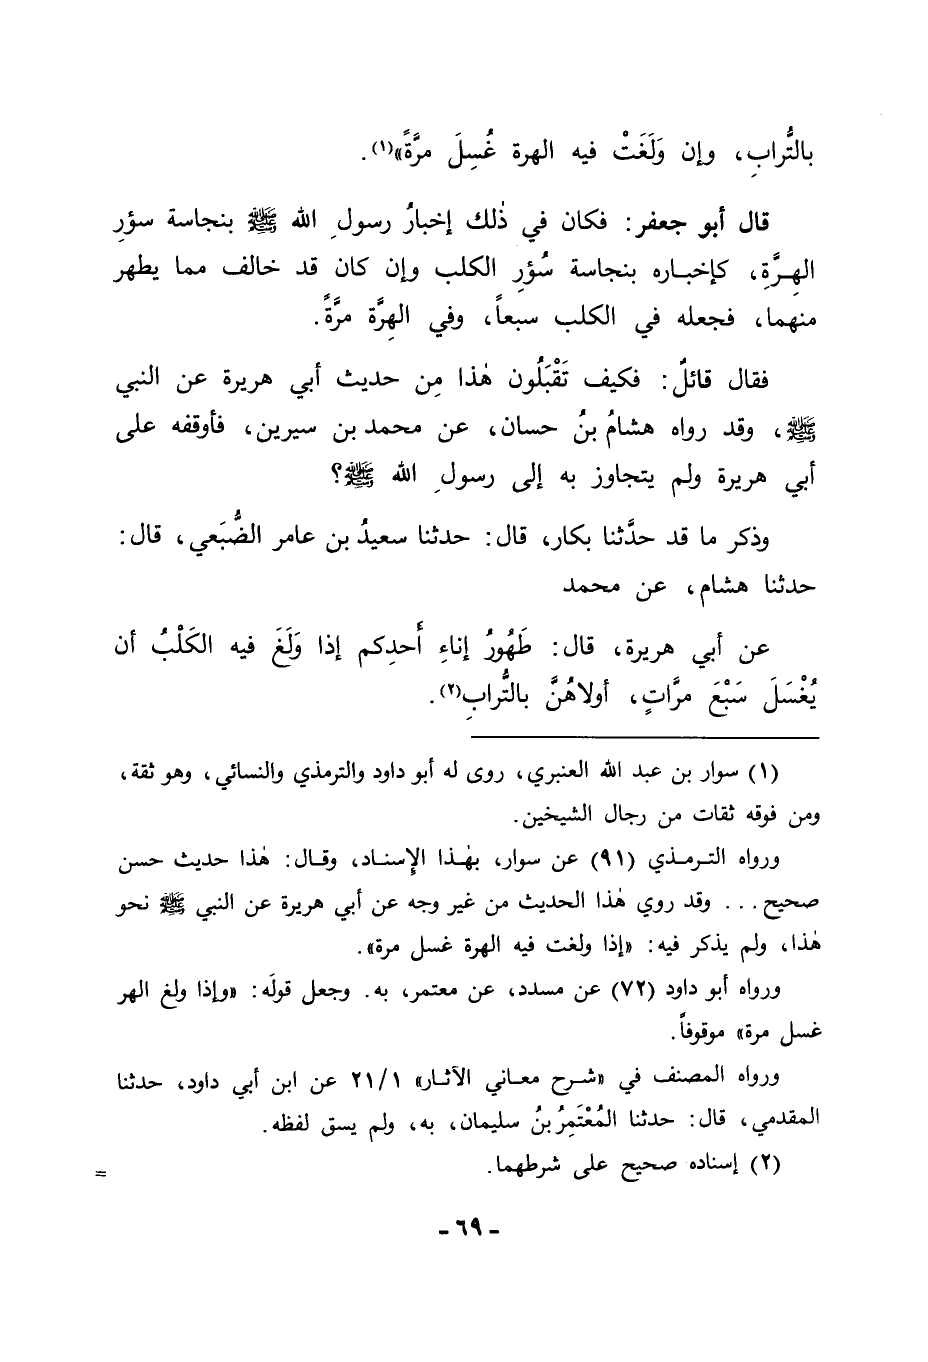 بالتُّرابِ، وإن وَلَغَتْ فيه الهرة غُسِلَ مرَّةً»(١).
قال أبو جعفر: فكان في ذٰلك إخبارُ رسولِ الله ﷺ بنجاسة سؤرِ
الهِرَّةِ، كإخباره بنجاسة سُؤرِ الكلب وإن كان قد خالف مما يطهر
منهما، فجعله في الكلب سبعاً، وفي الهِرَّة مرَّةً.
فقال قائلٌ: فكيف تَقْبَلُون هٰذا مِن حديث أبي هريرة عن النبي
ﷺ، وقد رواه هشامُ بنُ حسان، عن محمد بن سيرين، فأوقفه على
أبي هريرة ولم يتجاوز به إلى رسولِ الله ﷺ؟
وذكر ما قد حدَّثنا بكار، قال: حدثنا سعيدُ بن عامر الضُّبَعي، قال:
حدثنا هشام، عن محمد
عن أبي هريرة، قال: طَهُورُ إناءِ أَحدِكم إذا وَلَغَ فيه الكَلْبُ أن
يُغْسَلَ سَبْعَ مرَّاتٍ، أولاهُنَّ بالتُّرابِ(٢).
(١) سوار بن عبد الله العنبري، روى له أبو داود والترمذي والنسائي، وهو ثقة،
ومن فوقه ثقات من رجال الشيخين.
ورواه الترمذي (٩١) عن سوار، بهٰذا الإِسناد، وقال: هٰذا حديث حسن
صحيح... وقد روي هٰذا الحديث من غير وجه عن أبي هريرة عن النبي ﷺ نحو
هٰذا، ولم يذكر فيه: «إذا ولغت فيه الهرة غسل مرة».
ورواه أبو داود (٧٢) عن مسدد، عن معتمر، به. وجعل قولَه: «وإذا ولغ الهر
غسل مرة» موقوفاً.
ورواه المصنف في «شرح معاني الآثار» ٢١/١ عن ابن أبي داود، حدثنا
المقدمي، قال: حدثنا المُعْتَمِرُ بنُ سليمان، به، ولم يسق لفظه.
(٢) إسناده صحيح على شرطهما. =
- ٦٩ -